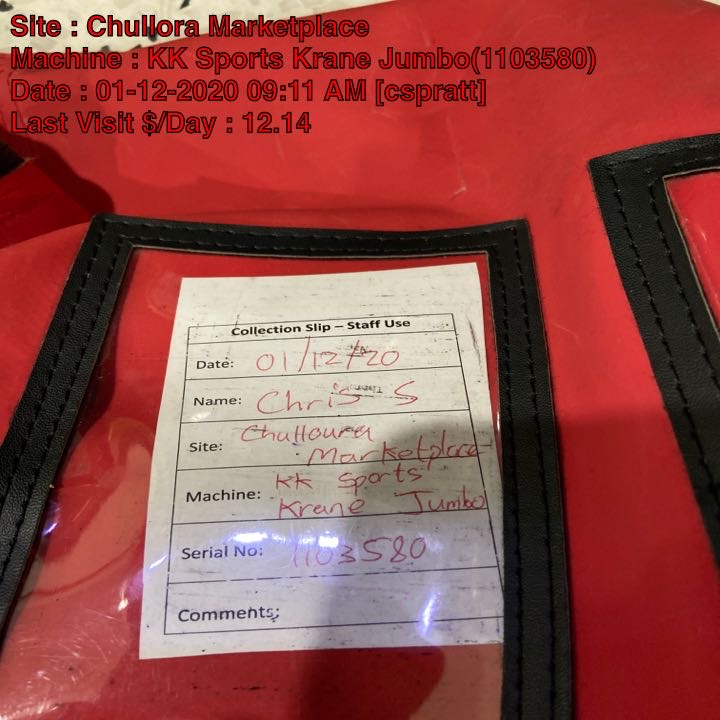 Site : Chullora Marketplace
Machine : KK Sports Krane Jumbo(1103580)
Date : 01-12-2020 09:11 AM [cspratt]
Last Visit $/Day : 12.14
Collection Slip – Staff Use
Date: 01/12/20
Name: Chris S
Site: Chulloura
Marketplace
Machine: KK Sports
Krane Jumbo
Serial No: 1103580
Comments: